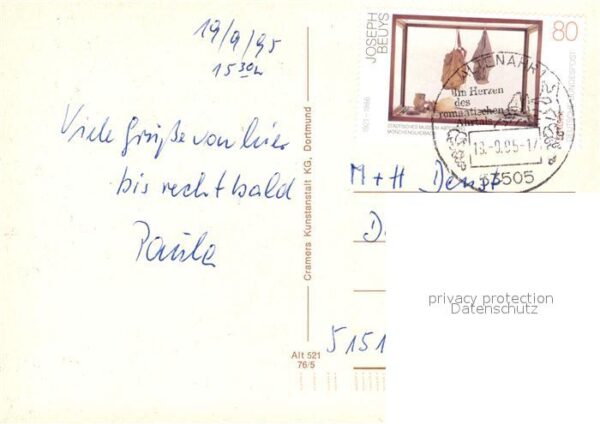 19/9/95
15 30h
Viele Grüße von hier
bis recht bald
Paula
Cramers Kunstanstalt KG, Dortmund
Alt 521
76/5
JOSEPH
BEUYS
1921-1986
80
STÄDTISCHES MUSEUM
MÖNCHENGLADBACH
Im Herzen
des
romantischen
Ahrtals
-9.95-17
53505
M + H
D
5151
privacy protection
Datenschutz